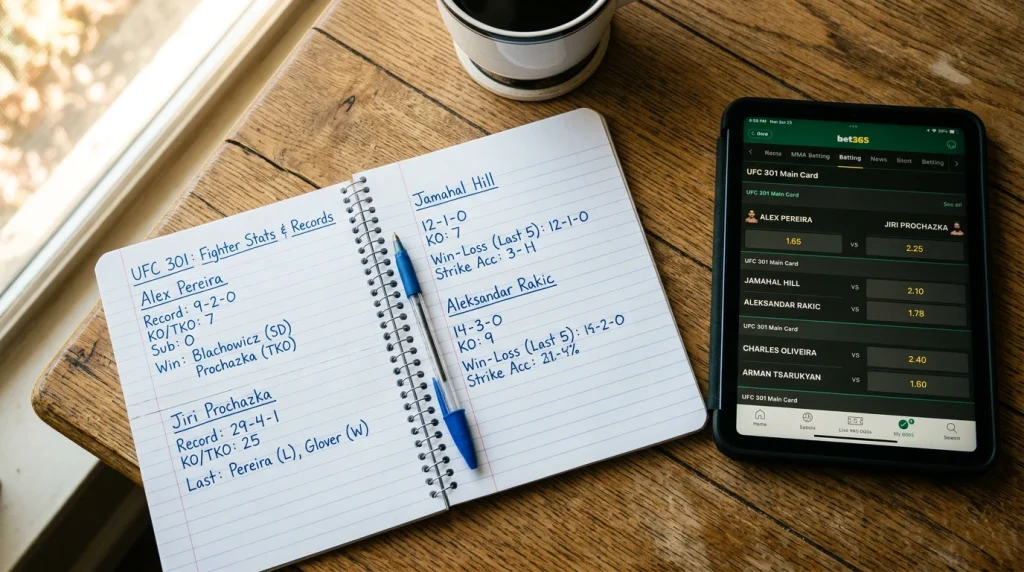 UFC 301: Fighter Stats & Records
Alex Pereira
Record: 9-2-0
KO/TKO: 7
Sub: 0
Win: Blachowicz (SD)
Prochazka (TKO)
Jiri Prochazka
Record: 29-4-1
KO/TKO: 25
Last: Pereira (L), Glover (W)
Jamahal Hill
12-1-0
KO: 7
Win-Loss (Last 5): 12-1-0
Strike Acc: 3-H
Aleksandar Rakic
14-3-0
KO: 9
Win-Loss (Last 5): 15-2-0
Strike Acc: 21-4%
bet365
MMA Betting Betting News Betting
UFC 301 Main Card
UFC 301 Main Card See all
ALEX PEREIRA JIRI PROCHAZKA
1.65 vs 2.25
UFC 301 Main Card
JAMAHAL HILL vs 2.10
ALEKSANDAR RAKIC vs 1.78
UFC 301 Main Card
CHARLES OLIVEIRA vs 2.40
ARMAN TSARUKYAN vs 1.60
UFC 301 Main Card
Home Search